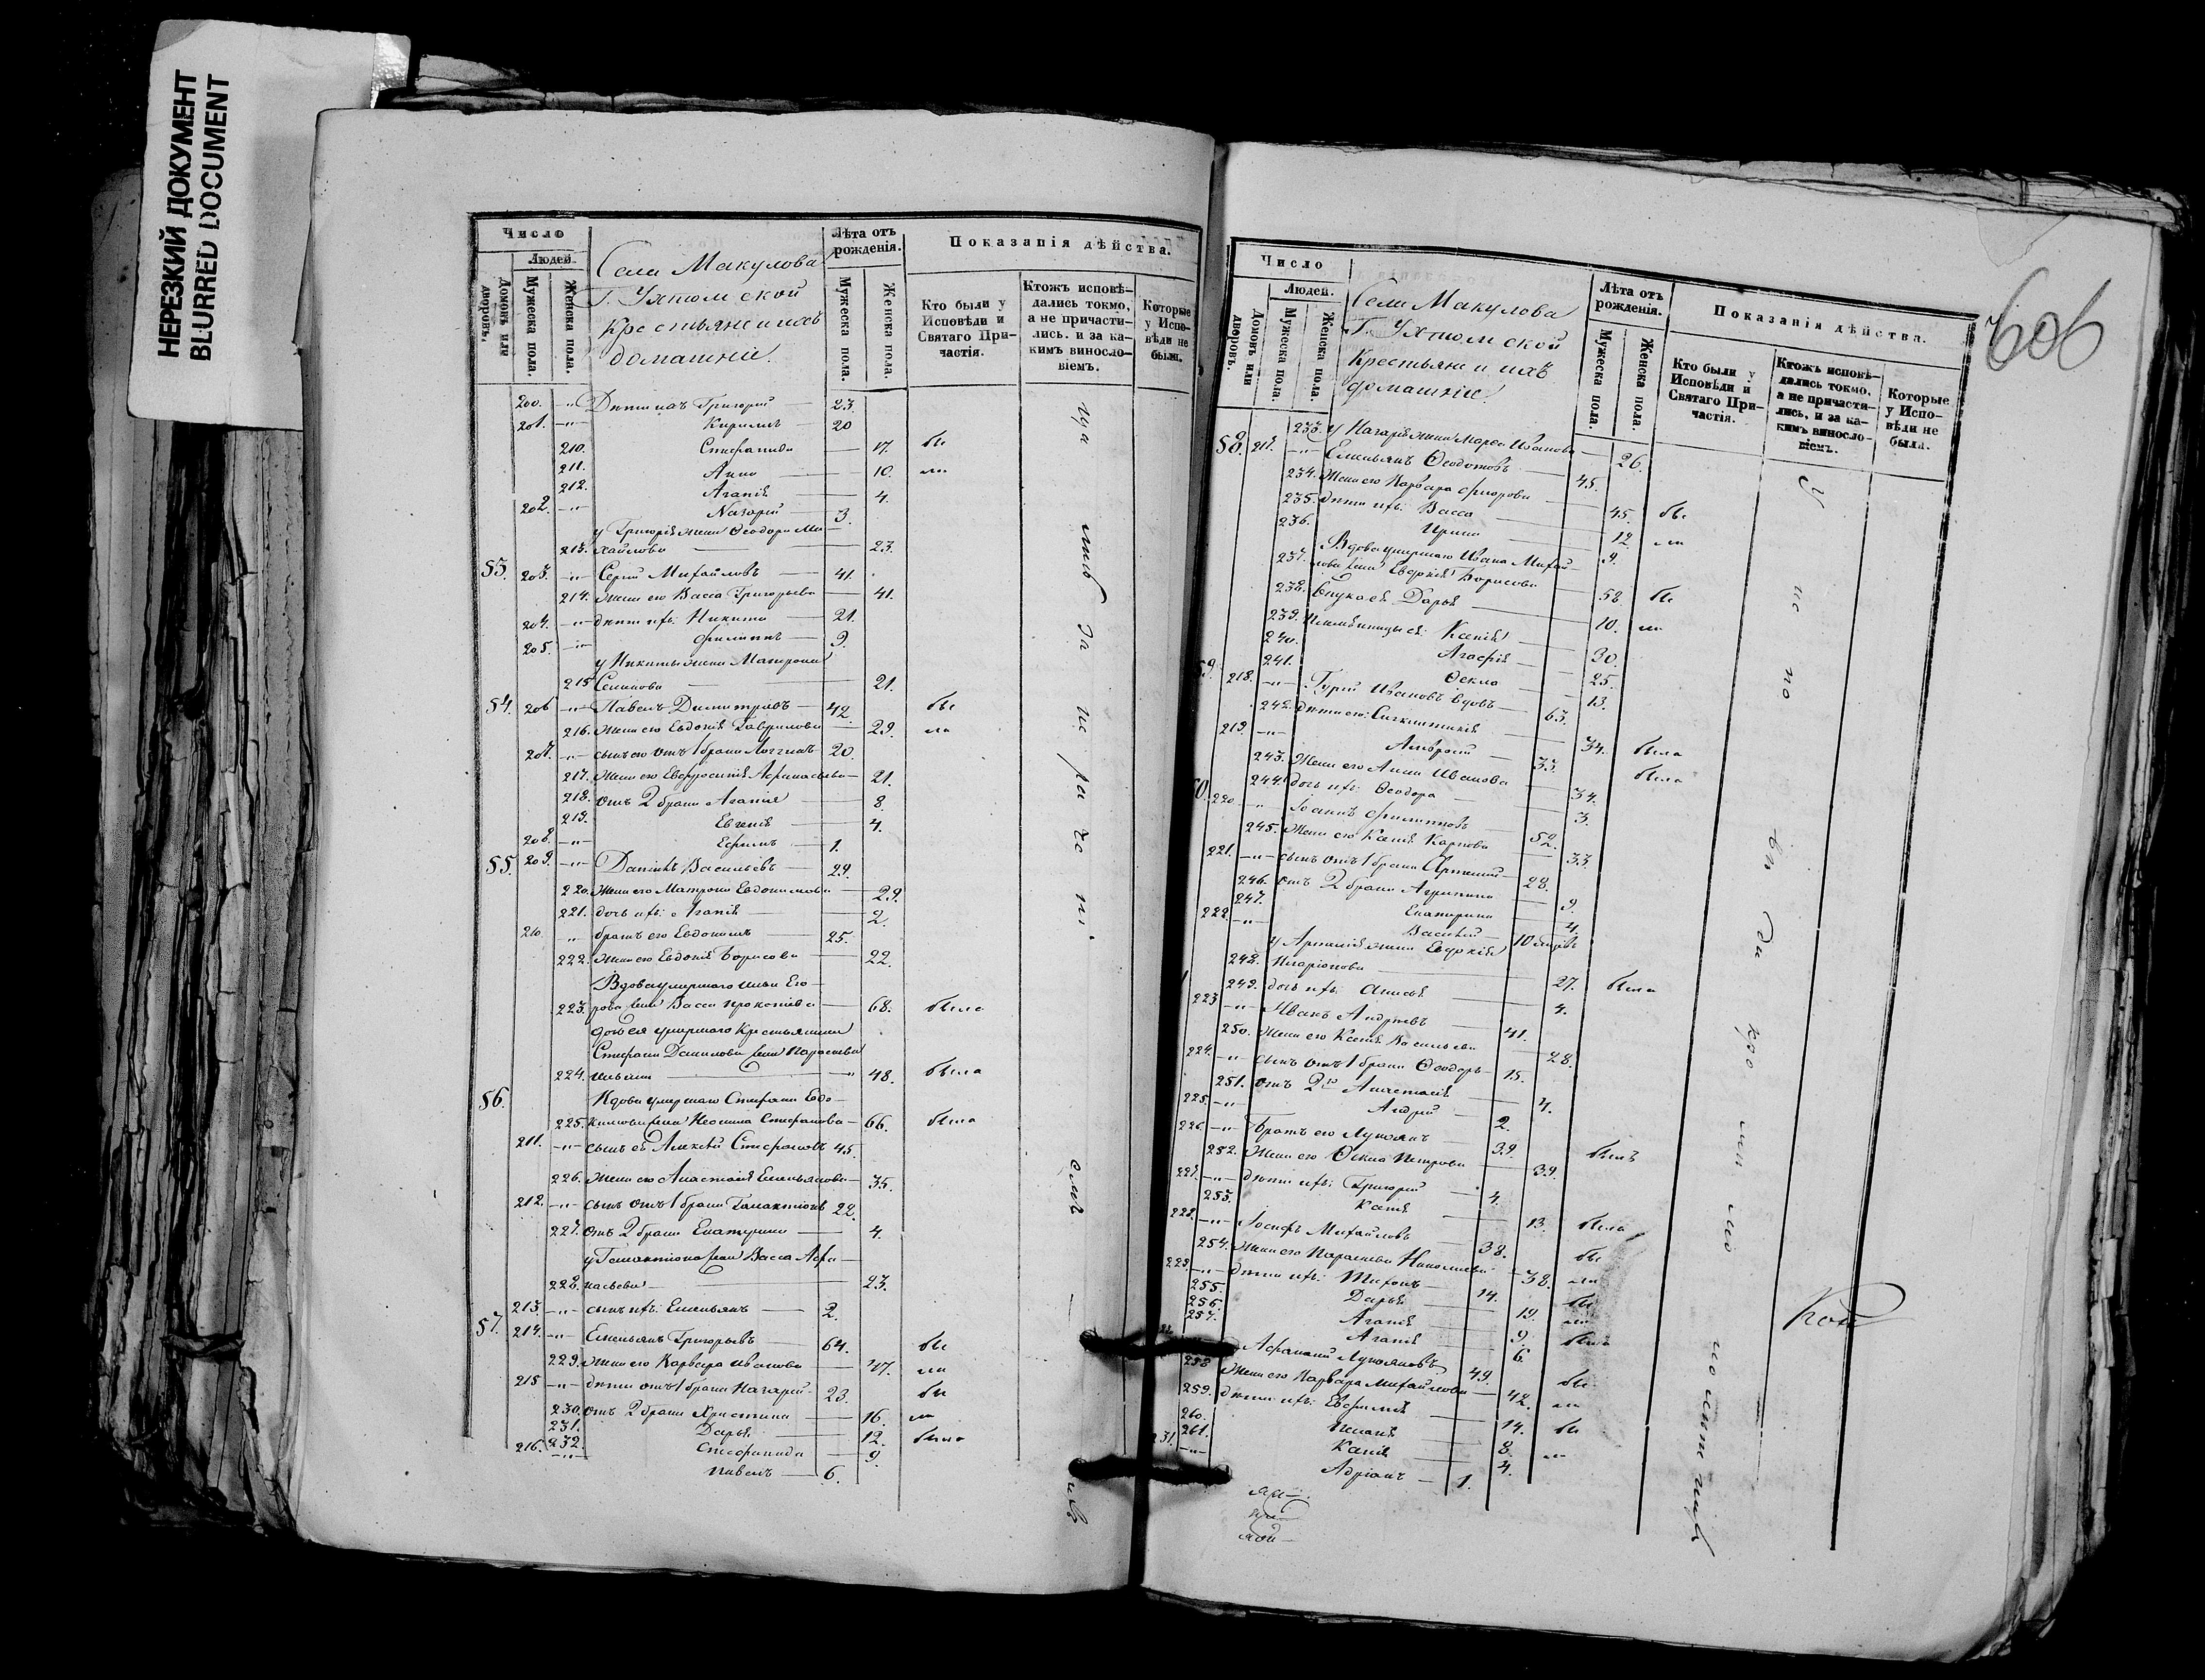 НЕРЕЗКИЙ ДОКУМЕНТ
BLURRED DOCUMENT
Число
Людей.
Домовъ или дворовъ.
Мужеска пола.
Женска пола.
Села Макулова
Г. Ухтомской
Крестьяне и ихъ
домашніе.
Лѣта отъ рожденія.
Мужеска пола.
Женска пола.
Показанія дѣйства.
Кто были у Исповѣди и Святаго Причастія.
Ктожъ исповѣдались токмо, а не причастились, и за какимъ винословіемъ.
Которые у Исповѣди не были.
200. -"- Дѣти ихъ Григорій — 23.
201. -"- Кирилъ — 20
210. Стефанида — 17. бы
211. Анна — 10. ли
212. Агапія — 4.
202. -"- Назарій — 3.
у Григорія жена Ѳеодора Ми-
213. хайлова — 23.
53. 203. -"- Сергій Михайловъ — 41.
214. жена его Васса Григорьева — 41.
204. -"- дѣти ихъ: Никита — 21.
205. -"- Филиппъ — 9.
у Никиты жена Матрона
215 Семенова — 21.
54. 206 -"- Павелъ Димитріевъ — 42. бы
216. жена его Евдокія Гаврилова — 29. ли
207. -"- сынъ его отъ 1 брака Логгинъ 20.
217. жена его Евфросинія Афанасьева — 21.
218. отъ 2 брака Агапія — 8.
219. Евгенія — 4.
208. -"- Ефимъ — 1.
55. 209. -"- Даніилъ Васильевъ — 29.
220. жена его Матрона Евдокимова — 29.
221. дочь ихъ: Агапія — 2.
210. " братъ его Евдокимъ — 25.
222. жена его Евдокія Борисова — 22.
Вдова умершаго Ильи Его-
223. рова жена Васса Прокопіева — 68. была
дочь ея умершаго Крестьянина
Стефана Данилова жена Параскева
224. Ильина — 48. была
56. Вдова умершаго Стефана Евдо-
225. кимова жена Неонила Стефанова — 66. была
211. -"- сынъ ея Алексѣй Стефановъ 45.
226. жена его Анастасія Емельянова — 35.
212. -"- сынъ отъ 1 брака Галактіонъ 22.
227. отъ 2 брака Екатерина — 4.
у Галактіона жена Васса Афа-
228. насьева — 23.
213. -"- сынъ ихъ: Емельянъ — 2.
57. 214. -"- Емельянъ Григорьевъ — 64. бы
229. жена его Варвара Иванова — 47. ли
215 -"- дѣти отъ 1 брака Назарій 23. бы
230. отъ 2 брака Христина — 16. ли
231. Дарья — 12. была
232. Стефанида — 9.
216. -"- Павелъ — 6.
606
Число
Людей.
Домовъ или дворовъ.
Мужеска пола.
Женска пола.
Села Макулова
Г. Ухтомской
Крестьяне и ихъ
домашніе
Лѣта отъ рожденія.
Мужеска пола.
Женска пола.
Показанія дѣйства.
Кто были у Исповѣди и Святаго Причастія.
Ктожъ исповѣдались токмо, а не причастились, и за какимъ винословіемъ.
Которые у Исповѣди не были.
233. у Назарія жена Марѳа Иванова — 26.
58. 217. -"- Емельянъ Ѳеодотовъ — 45.
234. жена его Варвара — 45. бы
235. дѣти ихъ: Васса — 12. ли
236. Ирина — 9.
Вдова умершаго Ивана Михай-
237. лова жена Евдокія Борисова — 58. бы
238. Внука ея Дарья — 10. ли
239. Племянницы ея: Ксенія — 30.
240. Агафія — 25.
241. Ѳекла — 13.
59. 218. -"- Гурій Ивановъ вдовъ — 63.
242. дѣти его: Синклитикія — 34. была
219. -"- Амвросій — 33.
243. жена его Анна Иванова — 34. была
244. дочь ихъ: Ѳеодора — 3.
60. 220. " Іоаннъ Филипповъ — 52.
245. жена его Ксенія Карпова — 33.
221. -"- сынъ отъ 1 брака Артемій — 28.
246. отъ 2 брака Агрипина — 9.
247. Екатерина — 4.
222. -"- Василій — 10 мѣсяцовъ
у Артемія жена Евдокія
248. Иларіонова — 27. была
249. дочь ихъ: Анисья — 4.
223 -"- Иванъ Андреевъ — 41.
250. жена его Ксенія Васильева — 28.
224. -"- сынъ отъ 1 брака Ѳеодоръ — 15.
251. отъ 2го Анастасія — 4.
225. -"- Андрей — 2.
226. -"- Братъ его Лукоянъ — 39. былъ
252. жена его Ѳекла Петрова — 39.
227. -"- дѣти ихъ: Григорій — 4.
253. Ксенія — 13. была
228. -"- Іосифъ Михайловъ — 38. бы
254. жена его Параскева Николаева — 38. ли
229. -"- дѣти ихъ: Тихонъ — 14. бы
255. Дарья — 19. ли
256. Агапія — 9. была
257. Агапія — 6.
Афанасій Лукояновъ — 49. бы
258 жена его Варвара Михайлова — 42. ли
259. дѣти ихъ: Евфимія — 14. бы
260. Пелагія — 8. ли
261. Ксенія — 4.
231. -"- Адріанъ — 1.